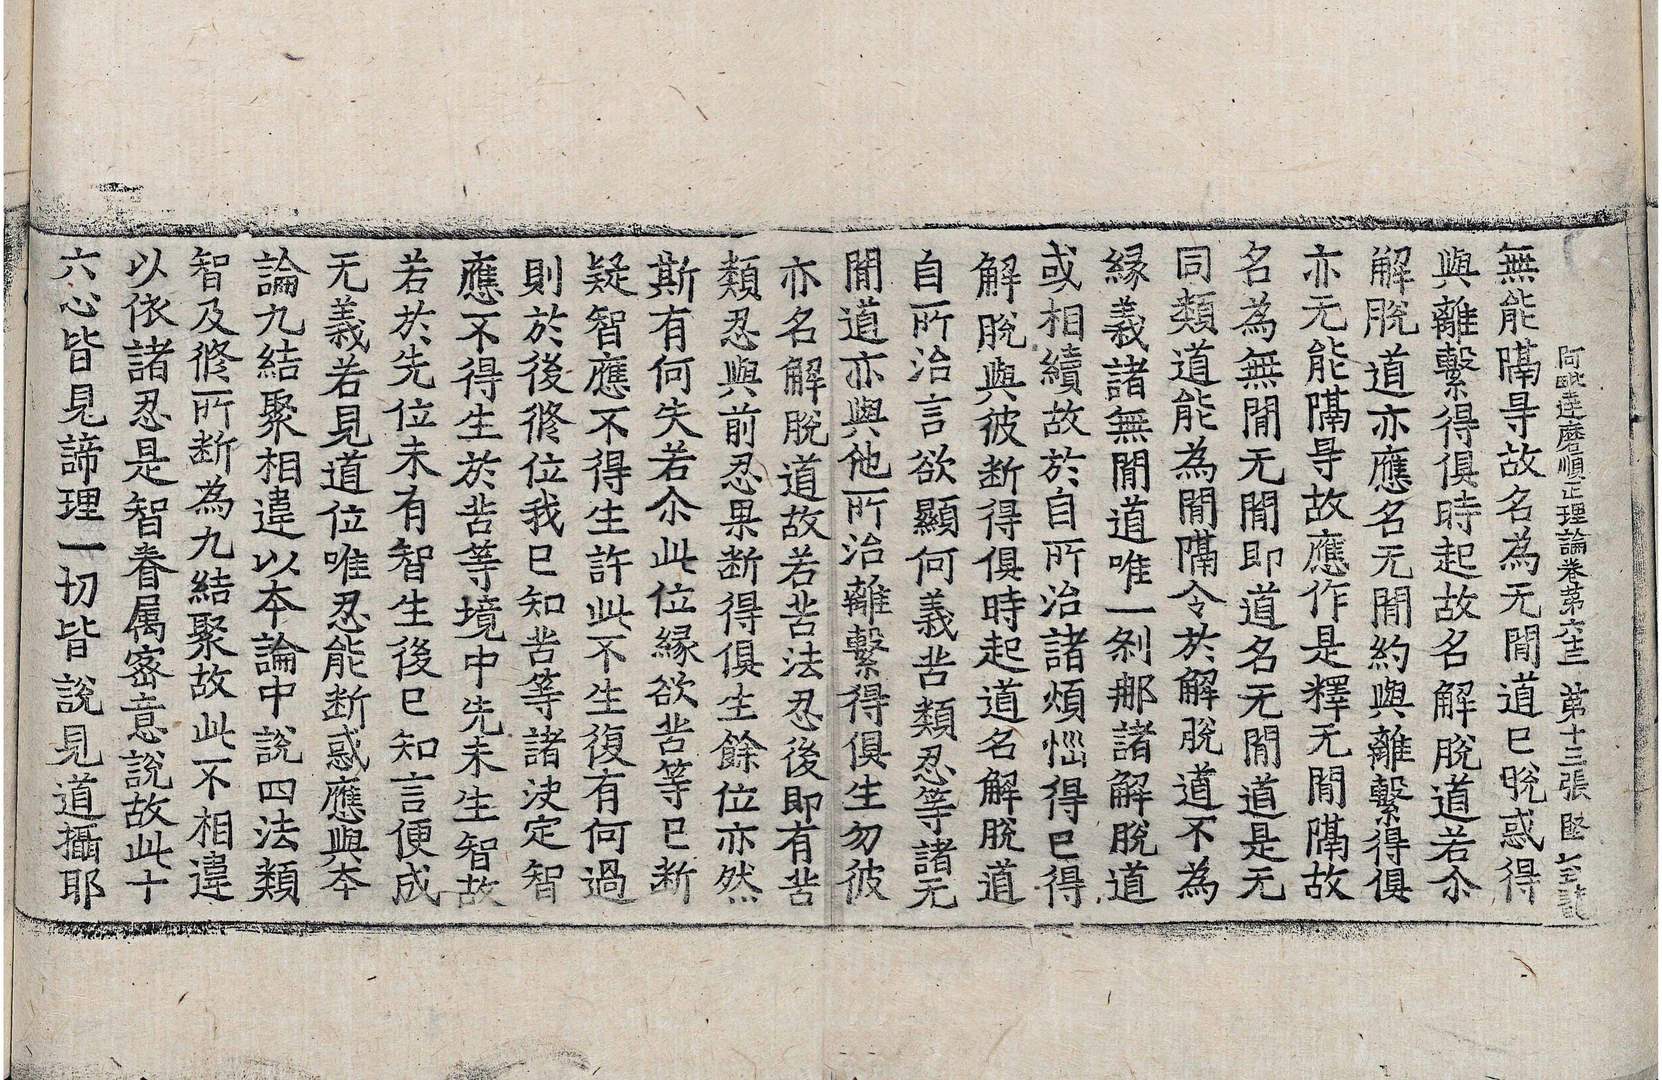 阿毗達磨順正理論卷第六十三 第十三張 堅
無能隔㝵故名為无間道已脫惑得
與離繫得俱時起故名解脫道若尒
解脫道亦應名无間約與離繫得俱
亦无能隔㝵故應作是釋无間隔故
名為無間无間即道名无間道是无
同類道能為間隔令於解脫道不為
緣義諸無間道唯一刹那諸解脫道
或相續故於自所治諸煩惱得已得
解脫與彼斷得俱時起道名解脫道
自所治言欲顯何義苦類忍等諸无
間道亦與他所治離繫得俱生勿彼
亦名解脫道故若苦法忍後即有苦
類忍與前忍果斷得俱生餘位亦然
斯有何失若尒此位緣欲苦等已斷
疑智應不得生許此不生復有何過
則於後修位我已知苦等諸決定智
應不得生於苦等境中先未生智故
若於先位未有智生後已知言便成
无義若見道位唯忍能斷惑應與本
論九結聚相違以本論中說四法類
智及修所斷為九結聚故此不相違
以依諸忍是智眷属密意說故此十
六心皆見諦理一切皆說見道攝耶